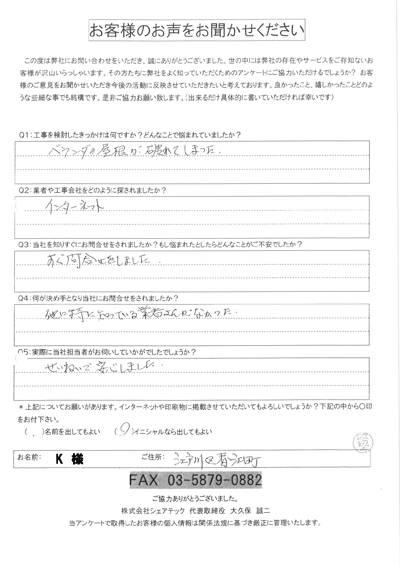 お客様のお声をお聞かせください
この度は弊社にお問い合わせをいただき、誠にありがとうございました。世の中には弊社の存在やサービスをご存知ないお
客様が沢山いらっしゃいます。その方たちに弊社をよく知っていただくためのアンケートにご協力いただけるでしょうか? お客
様のご意見をお聞かせいただき今後の活動に反映させていただきたいと考えております。良かったこと、嬉しかったことどのよ
うな些細な事でも結構です。是非ご協力お願い致します。(出来るだけ具体的に書いていただければ幸いです)
Q1:工事を検討したきっかけは何ですか?どんなことで悩まれていましたか?
ベランダの屋根が破れてしまった.
Q2:業者や工事会社をどのように探されましたか?
インターネット
Q3:当社を知りすぐにお問合せをされましたか?もし悩まれたとしたらどんなことがご不安でしたか?
すぐ問合せをしました.
Q4:何が決め手となり当社にお問合せをされましたか?
他に特に知っている業者さんがなかった.
Q5:実際に当社担当者がお伺いしていかがでしたでしょうか?
ていねいで安心しました
*上記についてお願いがあります。インターネットや印刷物に掲載させていただいてもよろしいでしょうか?下記の中から〇印
をお付下さい。
( )名前を出してもよい (〇)イニシャルなら出してもよい
お名前: K 様 ご住所: 江戸川区春江町
FAX 03-5879-0882
ご協力ありがとうございました。
株式会社シェアテック 代表取締役 大久保 誠二
当アンケートで取得したお客様の個人情報は関係法規に基づき厳正に管理いたします。